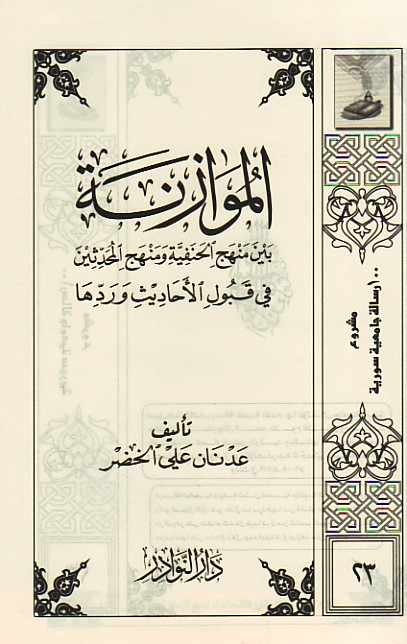 الموازنة
بَيْنَ مَنْهَجِ الحَنَفِيَّةِ وَمَنْهَجِ المُحَدِّثِيْنَ
في قَبُولِ الأَحَادِيثِ وَرَدِّهَا
تأليف
عَدنَان عَلي الخضر
دَارُ النَّوادِر
مشروع
١٠٠ رسالة جامعية سورية
٢٣